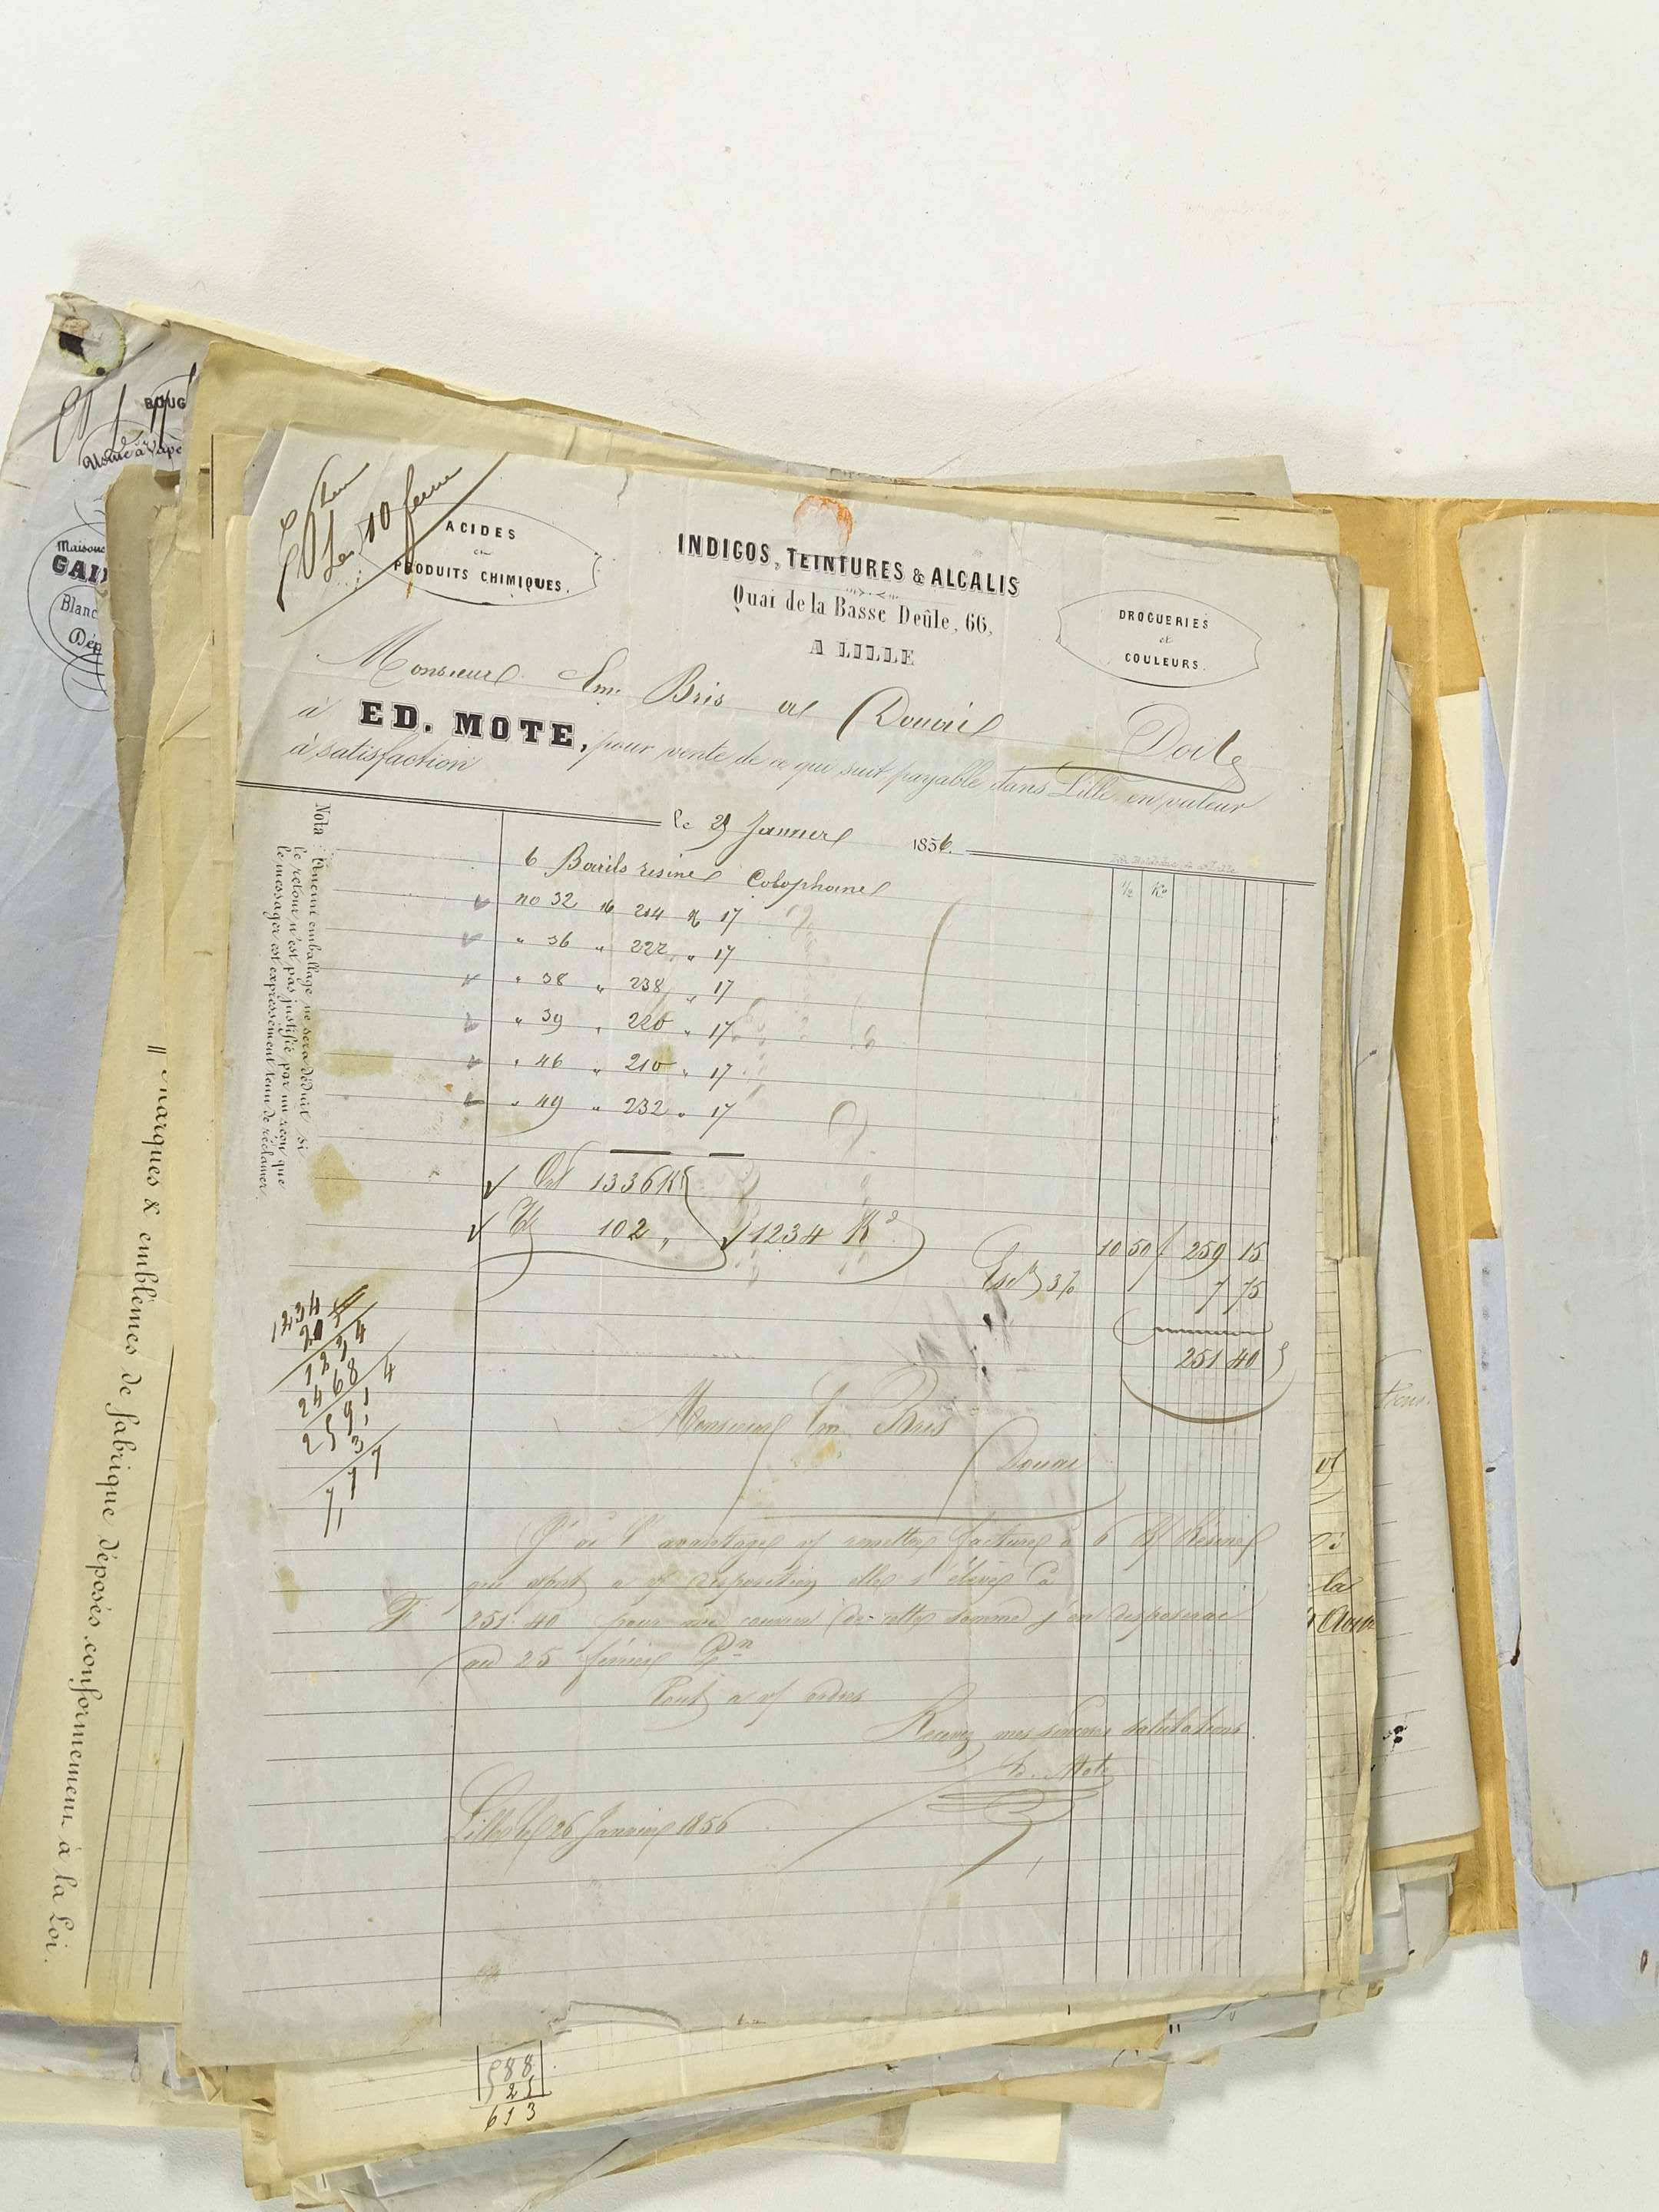 BOUG
Usine à Vape
Maison
GAI
Blanc
Dép
marques & emblèmes de fabrique déposés conformément à la Loi.
Le 10
ACIDES
et
PRODUITS CHIMIQUES.
INDIGOS, TEINTURES & ALCALIS
Quai de la Basse Deûle, 66,
A LILLE
DROGUERIES
et
COULEURS.
Monsieur Em. Bris a Douai Doit
à ED. MOTE, pour vente de ce qui suit payable dans Lille, en valeur
à satisfaction
le 25 Janvier 1856.
Nota : Aucun emballage ne sera déduit si
le retour n'est pas justifié par un reçu que
le messager est expressément tenu de réclamer.
½ Ko
6 Barils resine Colophane
no 32 16 214 K 17
" 36 " 222 " 17
" 38 " 238 " 17
" 39 " 220 " 17
" 46 " 210 " 17
" 49 " 232 " 17
Ort 1336 K
Te 102 " 1234 Ko 10 50 259 15
Esc 3% 7 75
251 40
1234
1234
2468
2591 4
3
7,77
Monsieur Em Bris
Douai
J'ai l'avantage remettre facture a 6 Résine
a disposition elle s'élève à
F 251.40 pour me couvrir de cette somme j'en disposerai
au 25 février
Tout a v/ ordres
Recevez mes sincères salutations
Ed. Mote
Lille le 26 Janvier 1856
la
588
25
613